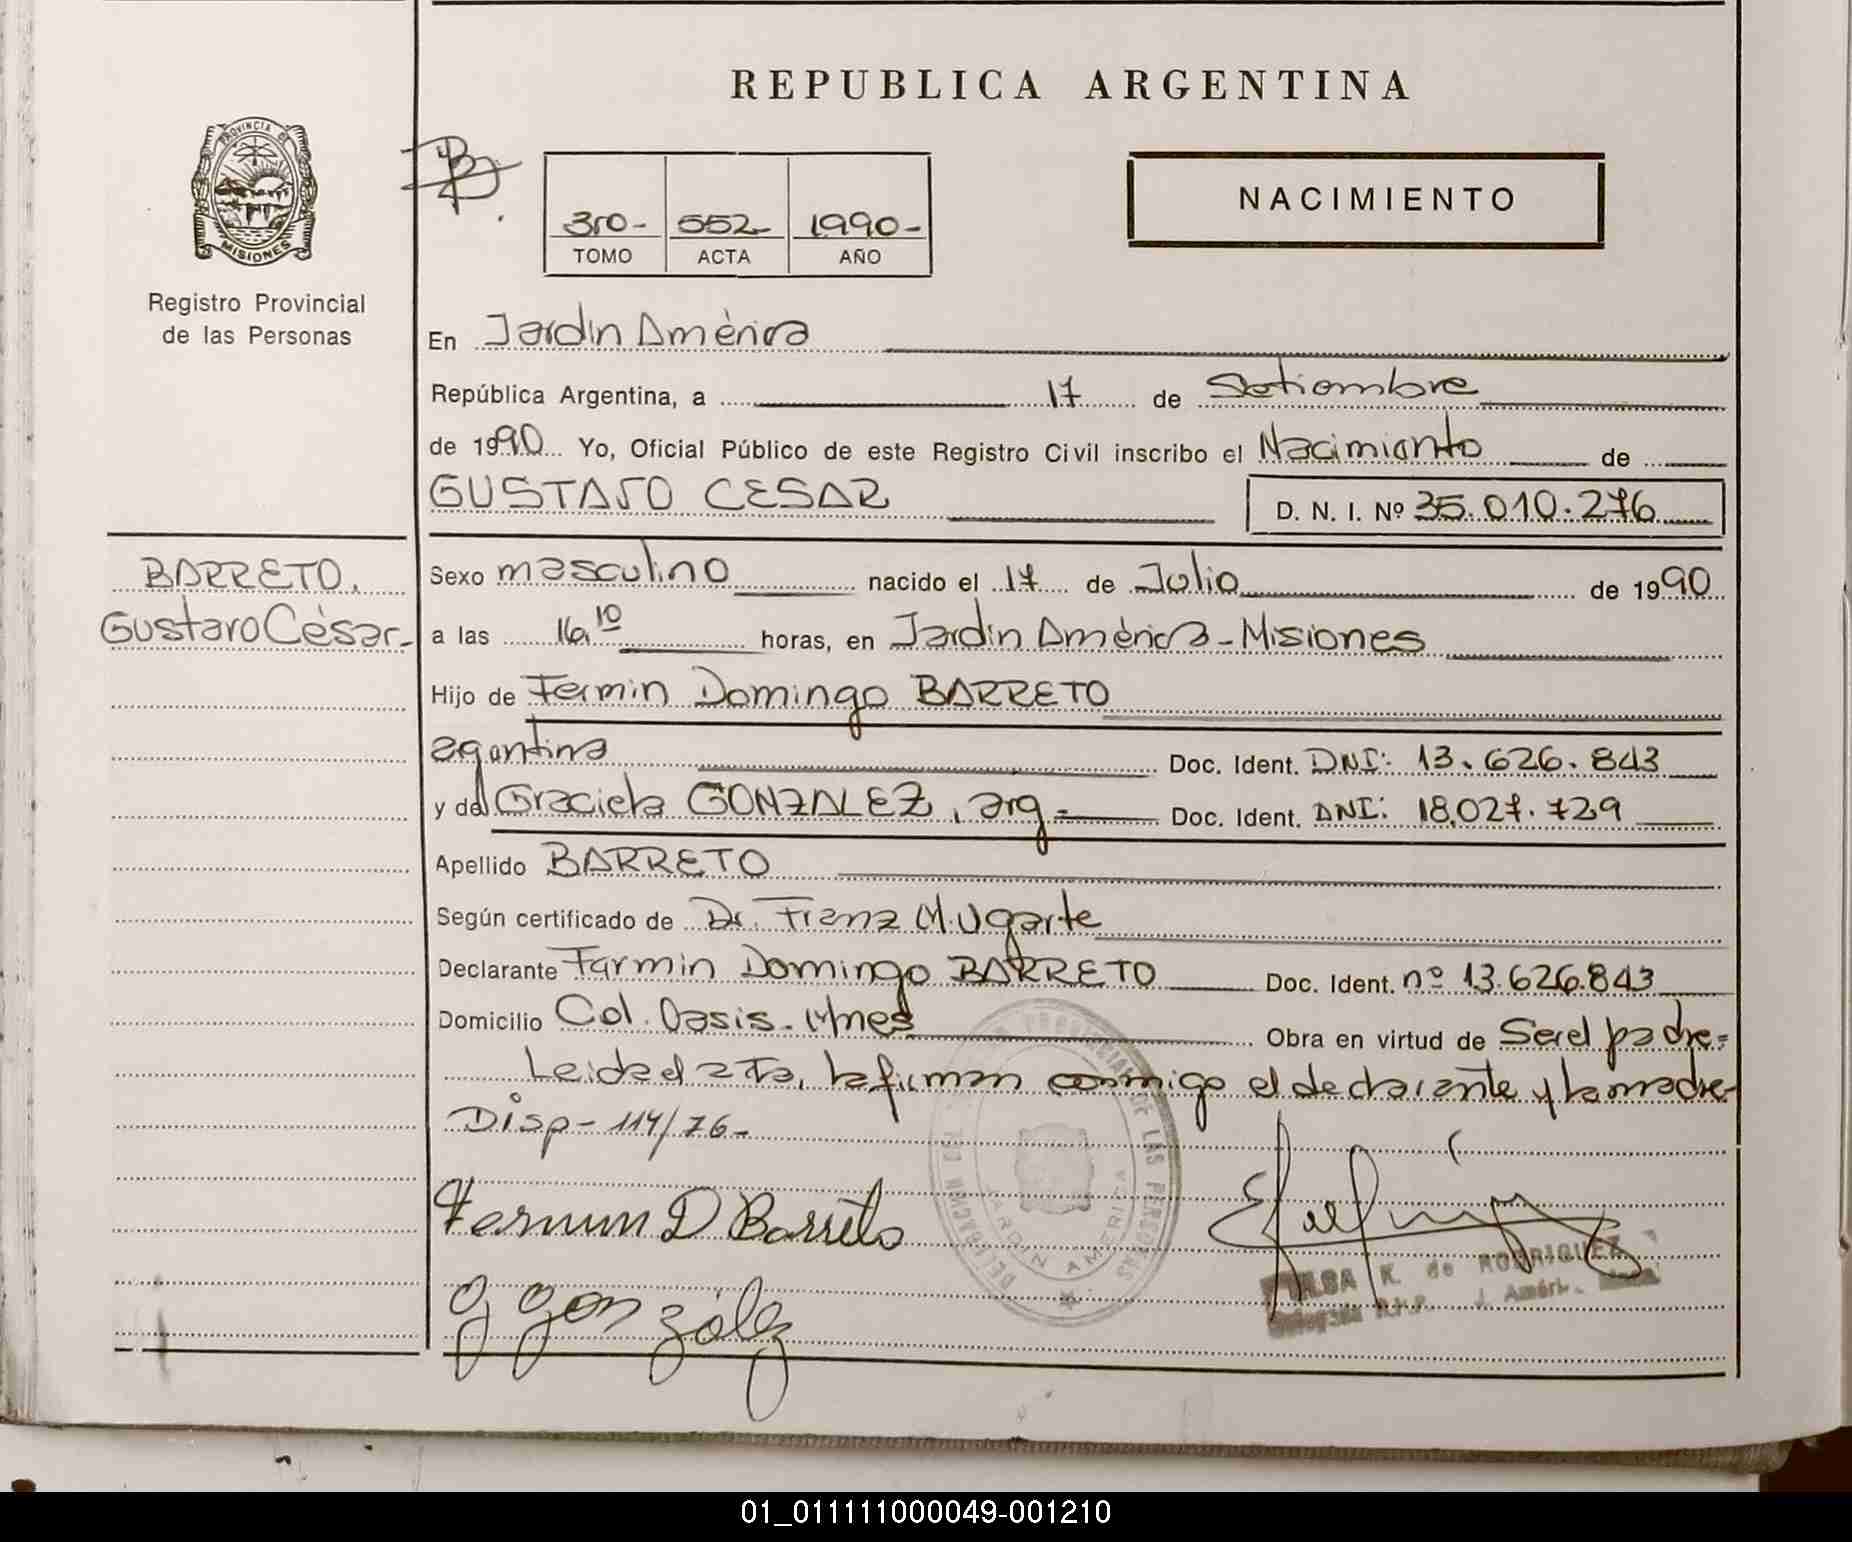 REPUBLICA ARGENTINA
PROVINCIA DE
MISIONES
Registro Provincial
de las Personas
3ro- 552- 1990-
TOMO ACTA AÑO
NACIMIENTO
En Jardin América
República Argentina, a 17 de Setiembre
de 1990 Yo, Oficial Público de este Registro Civil inscribo el Nacimiento de
GUSTAVO CESAR D. N. I. Nº 35.010.276
BARRETO,
Gustavo César-
Sexo masculino nacido el 17 de Julio de 1990
a las 16,10 horas, en Jardin América - Misiones
Hijo de Fermin Domingo BARRETO
agentina Doc. Ident. DNI: 13.626.843
y de Graciela GONZALEZ, arg- Doc. Ident. DNI: 18.027.729
Apellido BARRETO
Según certificado de Dr. Franz M. Ugarte
Declarante Farmin Domingo BARRETO Doc. Ident. nº 13.626.843
Domicilio Col. Oasis - Mnes Obra en virtud de Ser el padre=
Leida el acta, la firman conmigo el declarante y la madre-
Disp- 114/76-
Fermin D Barreto
G González
PROVINCIAL DE LAS PERSONAS
DELEGACION
JARDIN AMERICA
ELSA K. de RODRIGUEZ
Delegada R.P.P. J. Améri.
01_011111000049-001210